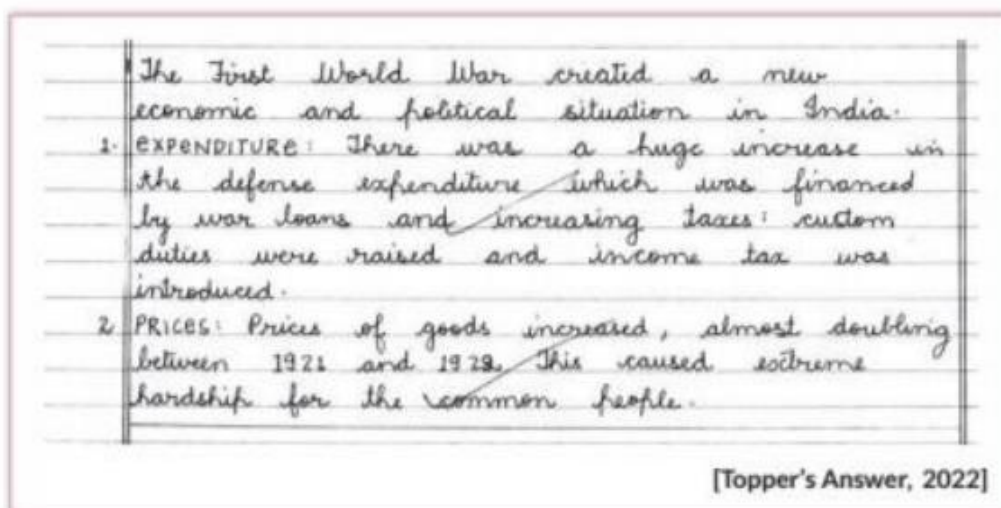 The First World War created a new
economic and political situation in India.
1. EXPENDITURE: There was a huge increase in
the defense expenditure which was financed
by war loans and increasing taxes: custom
duties were raised and income tax was
introduced.
2 PRICES: Prices of goods increased, almost doubling
between 1921 and 1922. This caused extreme
hardship for the common people.
[Topper's Answer, 2022]